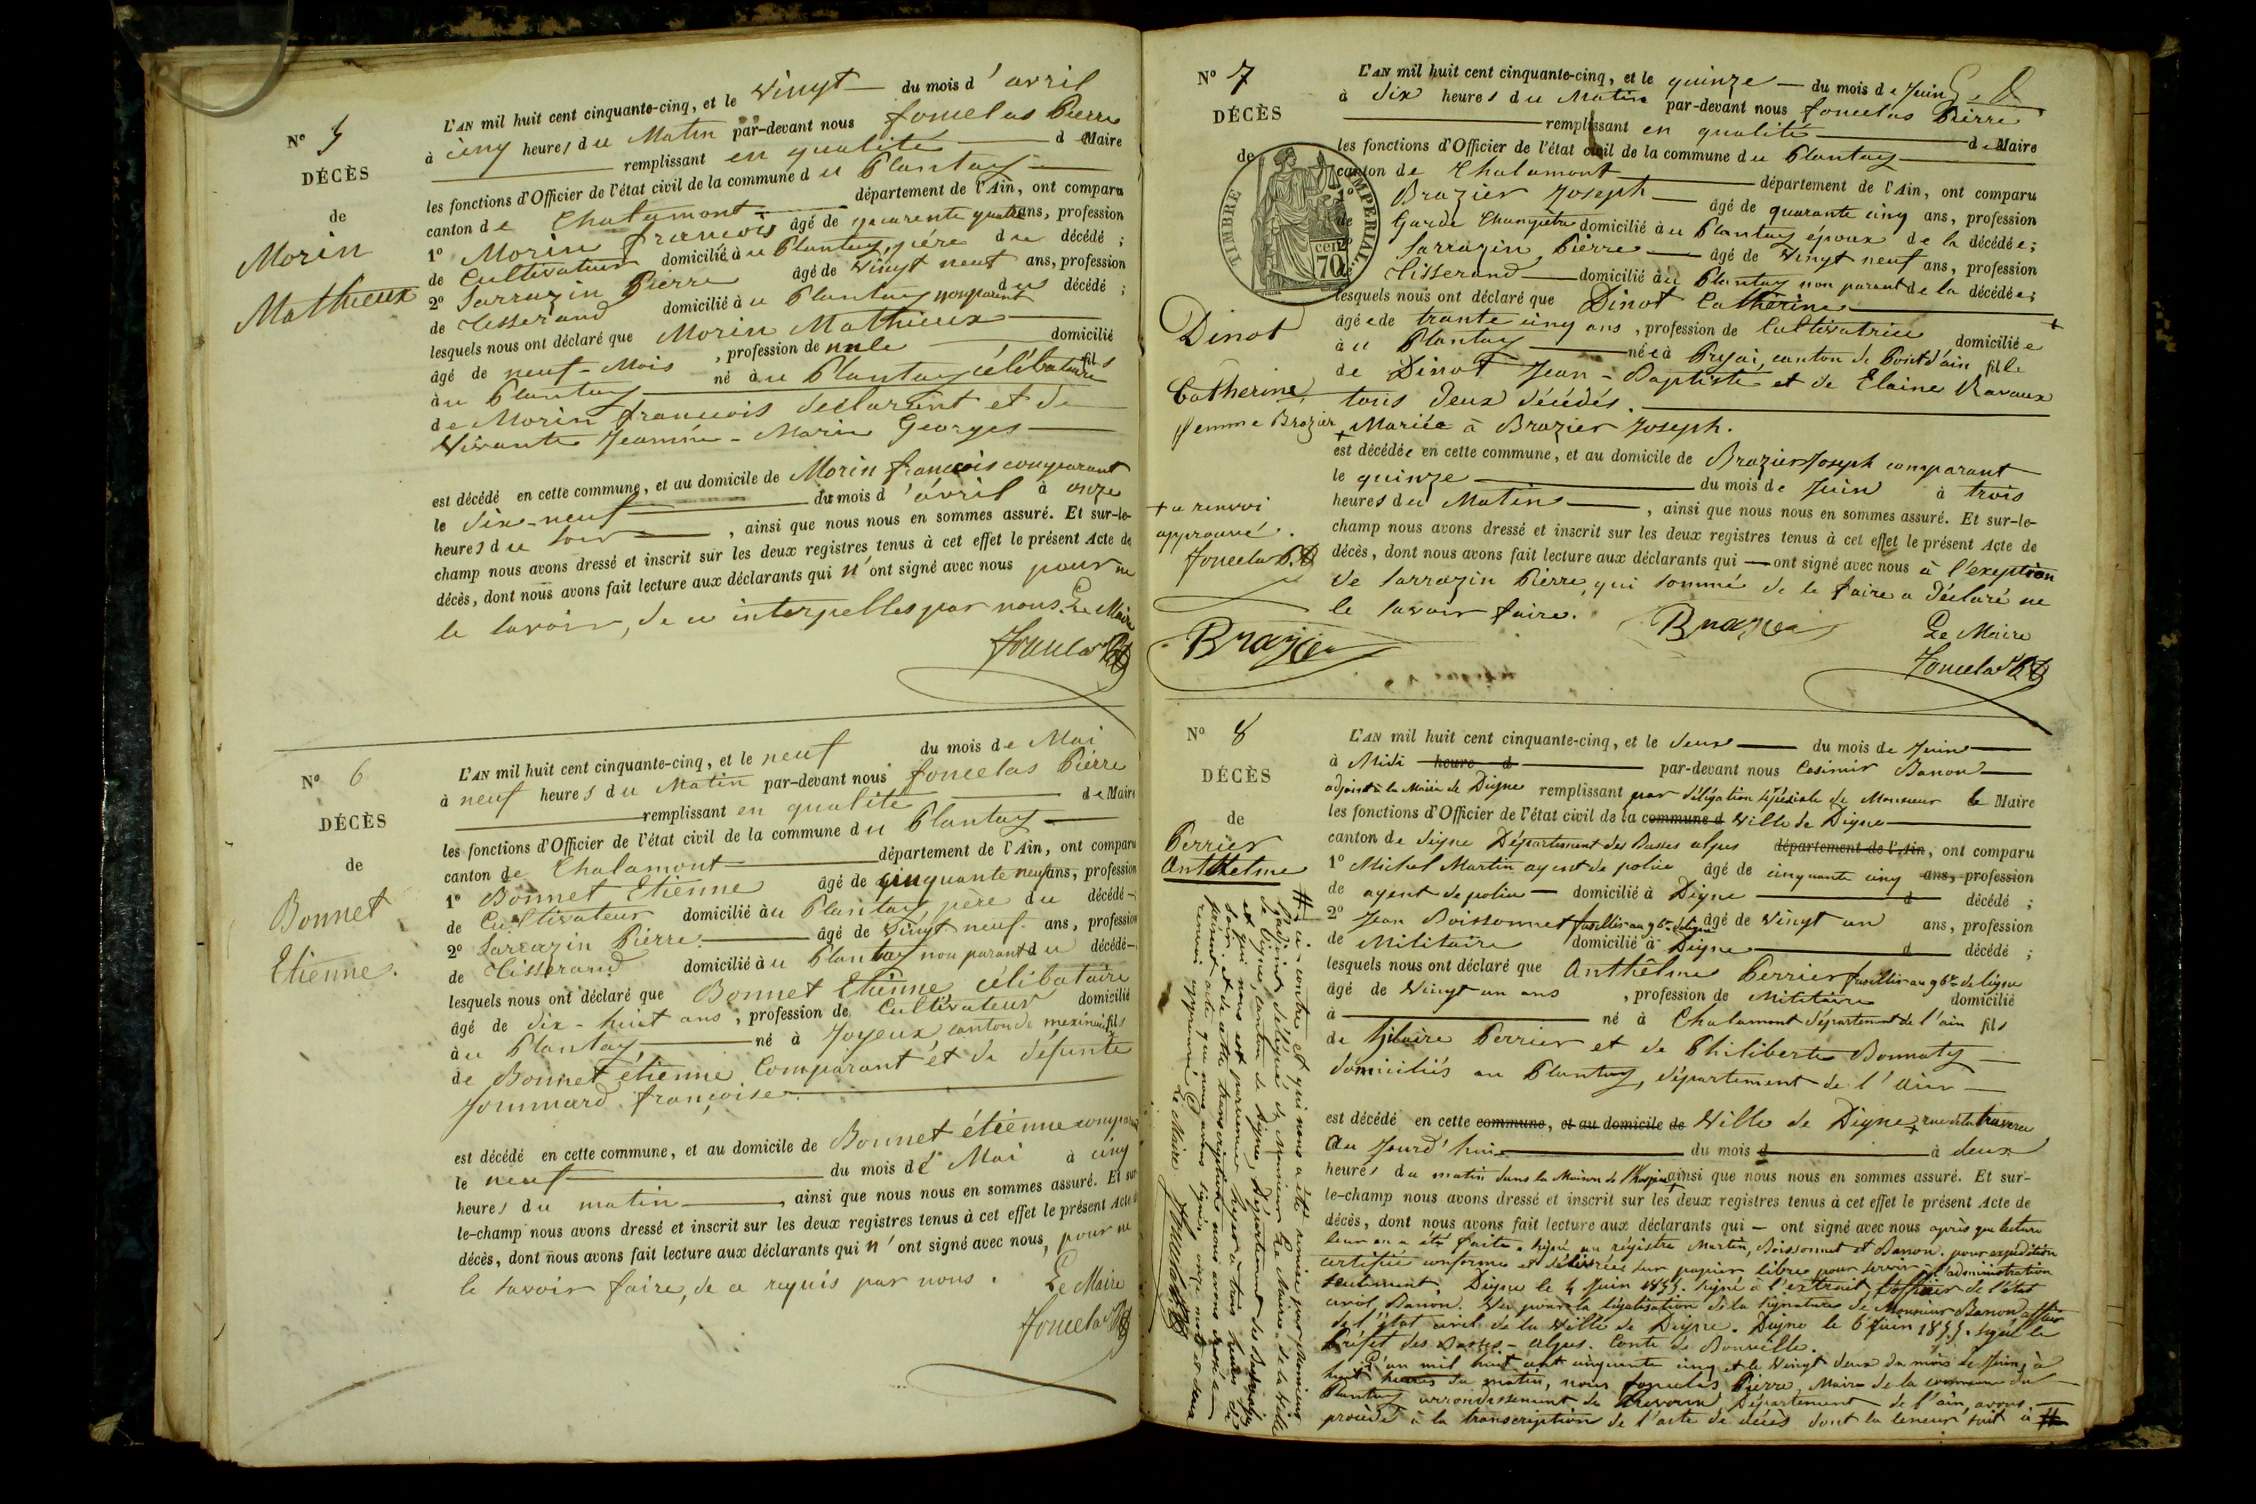 N° 5
DÉCÈS
de
Morin
Mathieux
L'AN mil huit cent cinquante-cinq, et le vingt — du mois d'avril
à cinq heures du Matin par-devant nous fouclas Pierre
remplissant en qualité — de Maire
les fonctions d'Officier de l'état civil de la commune du Plantay
canton de Chalamont — département de l'Ain, ont comparu
1° Morin francois âgé de quarente quatre ans, profession
de Cultivateur domicilié à u Plantay, père du décédé ;
2° Sarrazin Pierre âgé de vingt neuf ans, profession
de Tisserand domicilié à u Plantay non parent du décédé ;
lesquels nous ont déclaré que Morin Mathieux
âgé de neuf-Mois , profession de nule domicilié
à u Plantay né à u Plantay célibataire fils
de Morin francois declarant et de
vivante Jeanne-Marie Georges
est décédé en cette commune, et au domicile de Morin francois comparant
le dix-neuf du mois d'avril à onze
heures du soir , ainsi que nous nous en sommes assuré. Et sur-le-
champ nous avons dressé et inscrit sur les deux registres tenus à cet effet le présent Acte de
décès, dont nous avons fait lecture aux déclarants qui n'ont signé avec nous pour ne
le savoir, de ce interpellés par nous. Le Maire
Fouclas P
N° 6
DÉCÈS
de
Bonnet
Etienne.
L'AN mil huit cent cinquante-cinq, et le neuf du mois de Mai
à neuf heures du Matin par-devant nous fouclas Pierre
remplissant en qualité — de Maire
les fonctions d'Officier de l'état civil de la commune du Plantay
canton de Chalamont — département de l'Ain, ont comparu
1° Bonnet Etienne âgé de cinquante neuf ans, profession
de Cultivateur domicilié à u Plantay père du décédé
2° Sarrazin Pierre âgé de vingt neuf ans, profession
de Tisserand domicilié à u Plantay non parent du décédé
lesquels nous ont déclaré que Bonnet Etienne célibataire
âgé de dix-huit ans , profession de Cultivateur domicilié
à u Plantay né à Joyeux canton de meximieux fils
de Bonnet étienne Comparant et de défunte
Jommard françoise.
est décédé en cette commune, et au domicile de Bonnet étienne comparant
le neuf du mois de Mai à cinq
heures du matin , ainsi que nous nous en sommes assuré. Et sur
le-champ nous avons dressé et inscrit sur les deux registres tenus à cet effet le présent Acte
décès, dont nous avons fait lecture aux déclarants qui n'ont signé avec nous, pour ne
le savoir faire, de ce requis par nous. Le Maire
Fouclas P
N° 7
DÉCÈS
de
TIMBRE IMPERIAL
70 cen
Dinot
Catherine
femme Brazier
+ u renvoi
approuvé.
Fouclas P.
Brazier
L'AN mil huit cent cinquante-cinq, et le quinze — du mois de Juin
à dix heures du Matin par-devant nous fouclas Pierre
remplissant en qualité — de Maire
les fonctions d'Officier de l'état civil de la commune du Plantay
canton de Chalamont — département de l'Ain, ont comparu
1° Brazier Joseph — âgé de quarante cinq ans, profession
de Garde Champêtre domicilié à u Plantay époux de la décédée ;
2° Sarrazin Pierre — âgé de vingt neuf ans, profession
de Tisserand — domicilié à u Plantay non parent de la décédée ;
lesquels nous ont déclaré que Dinot Catherine
âgée de trante cinq ans , profession de Cultivatrice domiciliée +
à u Plantay — née à Pryai, canton de Pont d'ain fille
de Dinot Jean-Baptiste et de Claine Ravaux
tous deux décédés.
+ Mariée à Brazier Joseph.
est décédée en cette commune, et au domicile de Brazier Joseph comparant
le quinze du mois de Juin à trois
heures du Matin , ainsi que nous nous en sommes assuré. Et sur-le-
champ nous avons dressé et inscrit sur les deux registres tenus à cet effet le présent Acte de
décès, dont nous avons fait lecture aux déclarants qui — ont signé avec nous à l'exeption
de Sarrazin Pierre, qui sommé de le faire a déclaré ne
le savoir faire. Brazier Le Maire
Fouclas P
N° 8
DÉCÈS
de
Perrier
Anthelme
L'AN mil huit cent cinquante-cinq, et le deux — du mois de Juin
à Midi heure d — par-devant nous Casimir Banon
adjoint à la Mairie de Digne remplissant par délégation spéciale de Monsieur le Maire
les fonctions d'Officier de l'état civil de la commune d ville de Digne
canton de digne Département des Basses alpes département de l'Ain, ont comparu
1° Michel Martin agent de police âgé de cinquante cinq ans, profession
de agent de police — domicilié à Digne d décédé ;
2° Jean Boissonnet fusillier au 9e de ligne âgé de vingt un ans, profession
de Militaire domicilié à Digne d décédé ;
lesquels nous ont déclaré que Anthêlme Perrier fusillier au 9e de ligne
âgé de vingt un ans , profession de Militaire domicilié
à — né à Chalamont département de l'ain fils
de hilaire Perrier et de Philiberte Bonnaty
domiciliés au Plantay, département de l'ain
est décédé en cette commune, et au domicile de ville de Digne + rue de la traverse
au jourd'hui du mois d à deux
heures du matin dans la Maison de l'Hospice ainsi que nous nous en sommes assuré. Et sur-
le-champ nous avons dressé et inscrit sur les deux registres tenus à cet effet le présent Acte de
décès, dont nous avons fait lecture aux déclarants qui — ont signé avec nous après que lecture
leur en a été faite. signé au régistre Martin, Boissonnet et Banon. pour expédition
certifiée conforme et délivrée sur papier libre pour servir à l'administration
seulement. Digne le 4 Juin 1855. signé à l'extrait, l'officier de l'état
civil, Banon. Vu pour la légalisation de la signature de Monsieur Banon officier
de l'état civil de la ville de Digne. Digne le 6 Juin 1855. signé le
Préfet des Basses-alpes. Comte de Bouville.
L'an mil huit cent cinquante cinq et le vingt deux du mois de Juin, à
huit heures du matin, nous fouclas Pierre, Maire de la commune du
Plantay arrondissement de trevoux Département de l'ain, avons
procédé à la transcription de l'acte de décès dont la teneur suit à #
# ci-contre et qui nous a été remise par Monsieur
l'adjoint délégué de Monsieur le Maire de la ville
de Digne, canton de Digne, Département des Basses alpes
et qui nous est parvenue hyer à trois heures du
soir. et de cette transcription nous avons dressé le
présent acte que nous avons signé, onze mots et deux
renvoi approuvé Le Maire Fouclas P